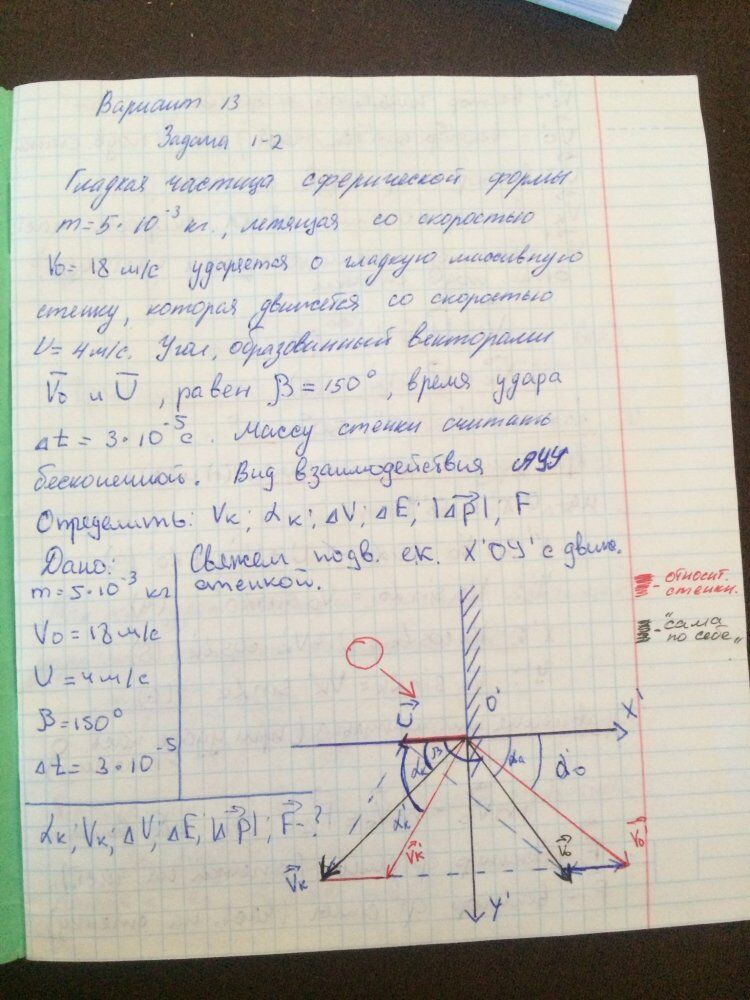 Вариант 13
Задача 1-2
Гладкая частица сферической формы
m = 5·10⁻³ кг., летящая со скоростью
V₀ = 18 м/с ударяется о гладкую массивную
стенку, которая движется со скоростью
U = 4 м/с. Угол, образованный векторами
V̄₀ и Ū, равен β = 150°, время удара
Δt = 3·10⁻⁵ с. Массу стенки считать
бесконечной. Вид взаимодействия АУУ
Определить: Vк; αк; ΔV; ΔE; |Δp⃗|; F
Дано:
m = 5·10⁻³ кг
V₀ = 18 м/с
U = 4 м/с
β = 150°
Δt = 3·10⁻⁵
αк; Vк; ΔV; ΔE; |Δp⃗|; F⃗ - ?
Свяжем подв. с.к. X'O'Y' с движ.
стенкой.
- относит.
стенки.
- "сама
по себе"
O'
X'
U⃗
β
αк
α₀
α'₀
α'к
V⃗к
V⃗'к
V⃗₀
V⃗'₀
Y'